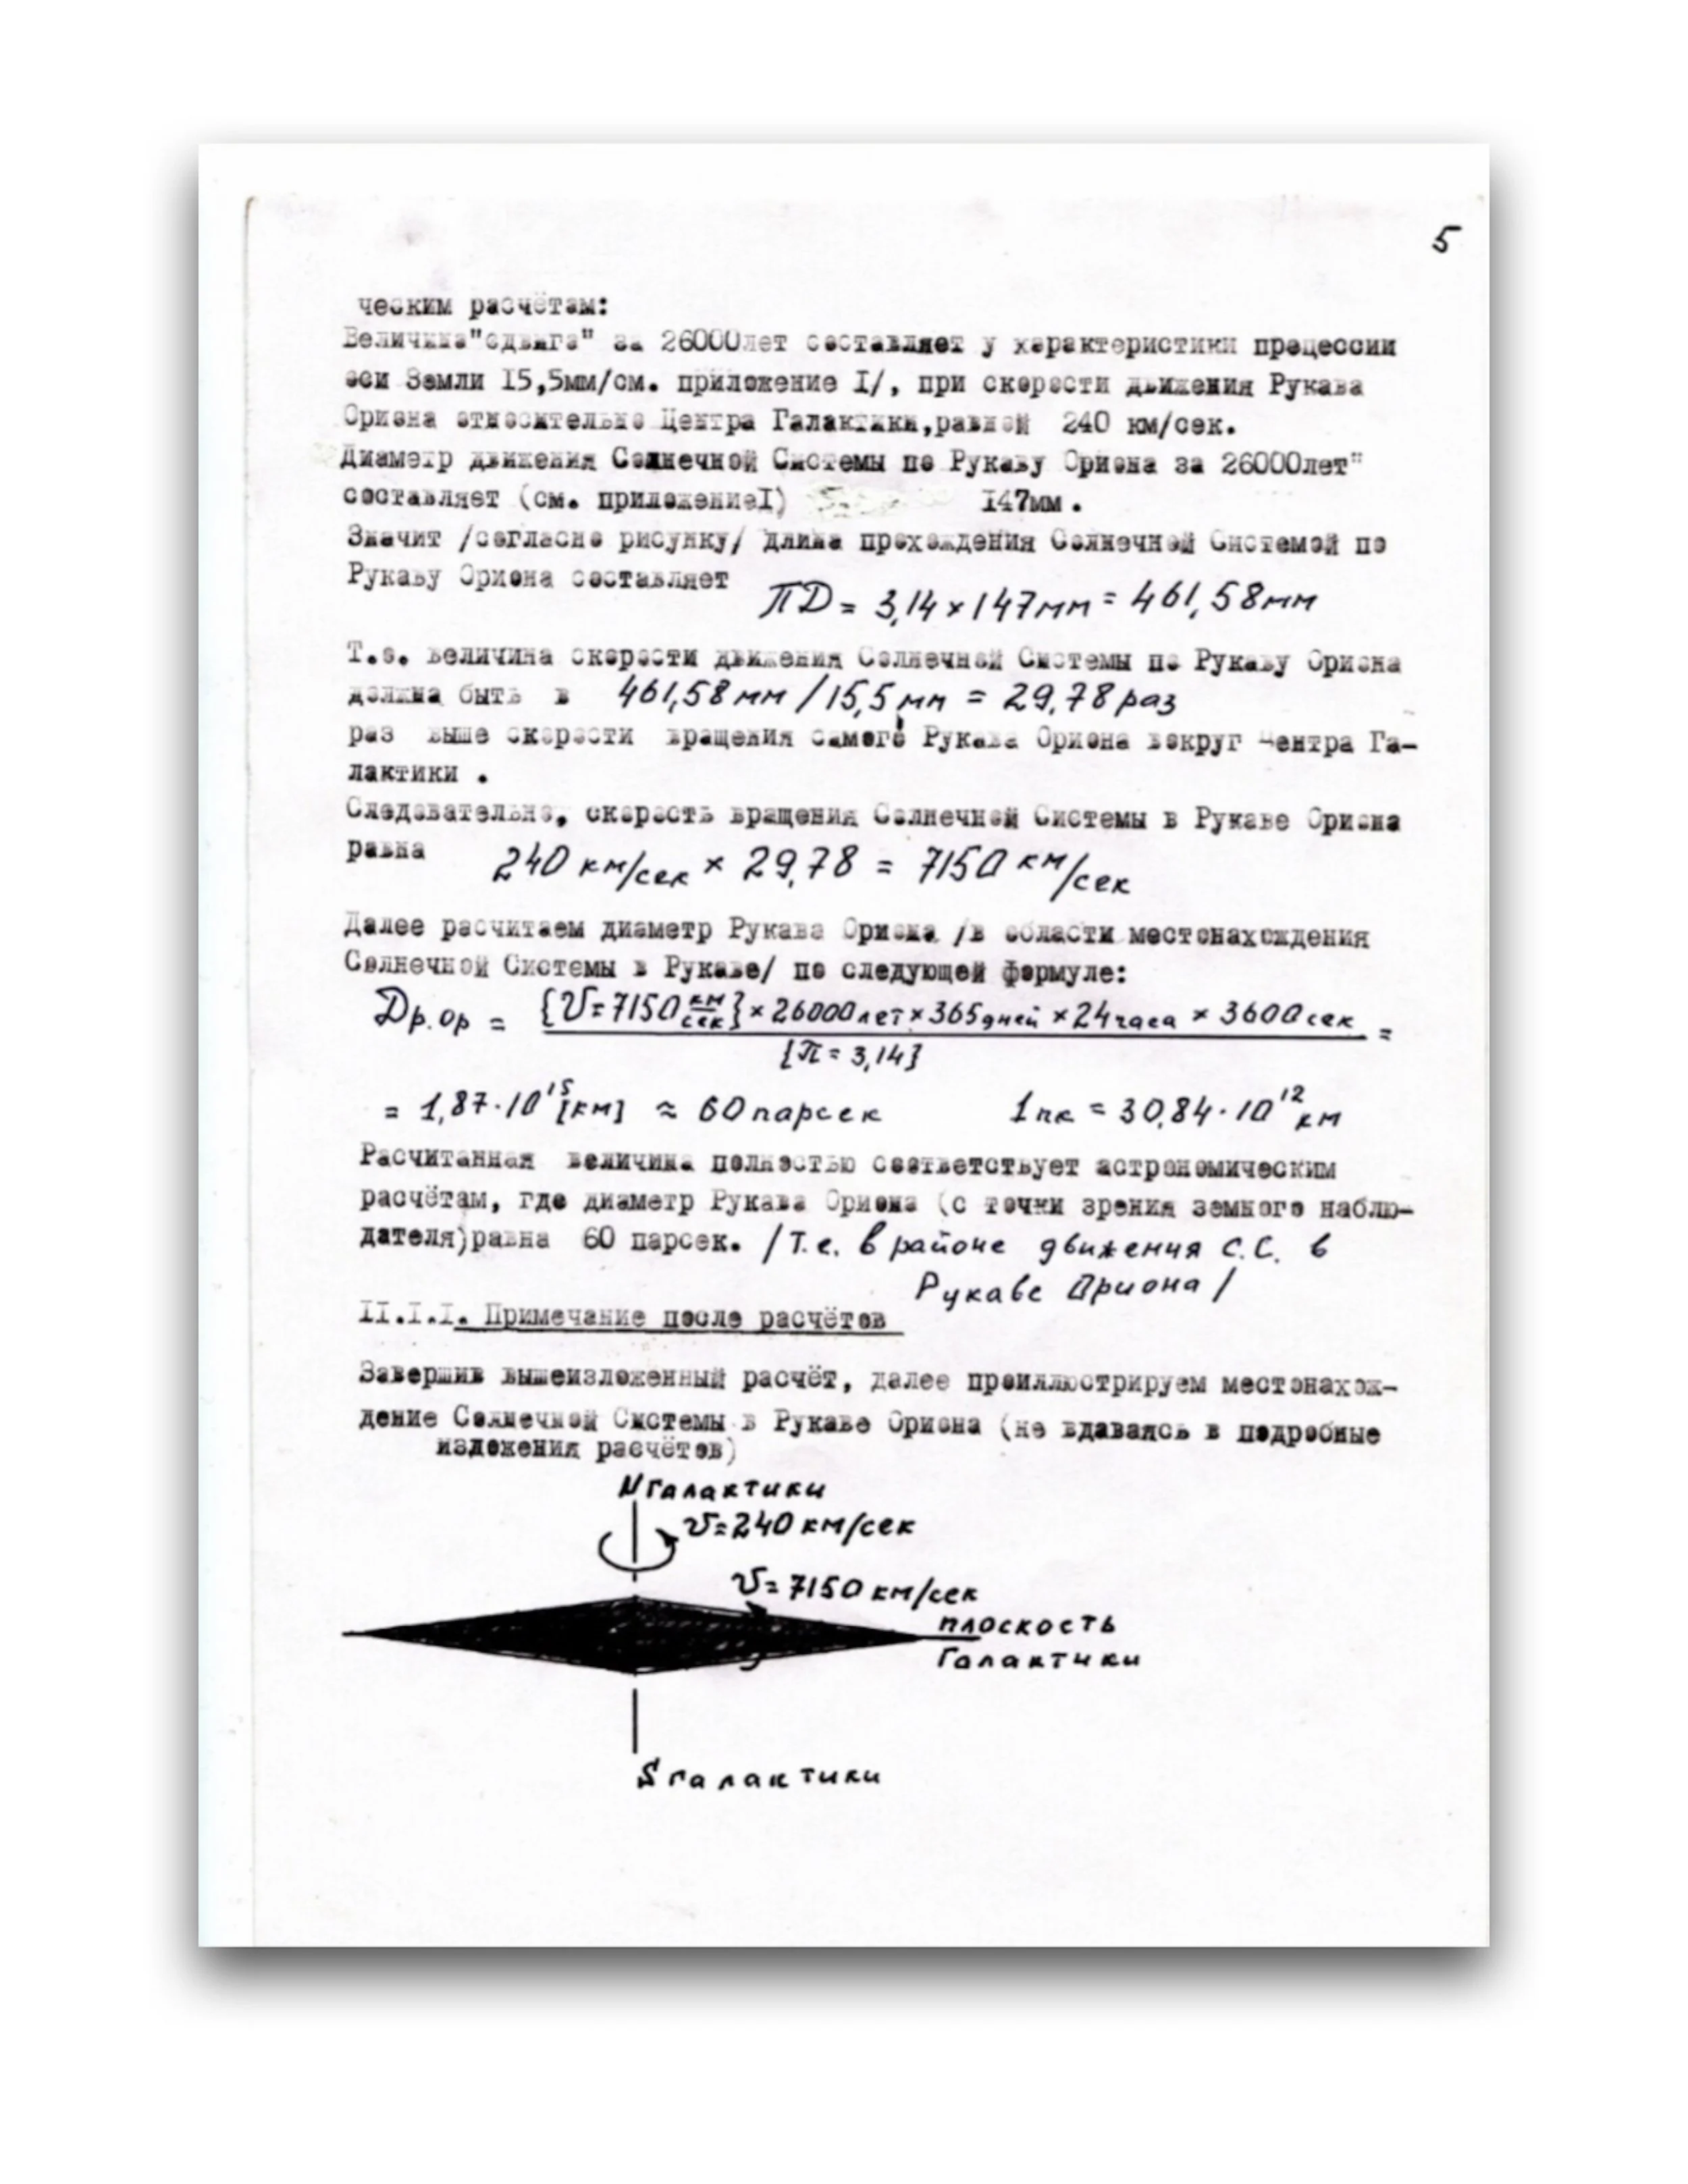 5
ческим расчётам:
Величина"сдвига" за 26000лет составляет у характеристики прецессии
оси Земли I5,5мм/см. приложение I/, при скорости движения Рукава
Ориона относительно Центра Галактики,равной 240 км/сек.
Диаметр движения Солнечной Системы по Рукаву Ориона за 26000лет"
составляет (см. приложениеI) I47мм.
Значит /согласно рисунку/ длина прохождения Солнечной Системой по
Рукаву Ориона составляет ПД = 3,14 × 147мм = 461,58мм
Т.е. величина скорости движения Солнечной Системы по Рукаву Ориона
должна быть в 461,58 мм / 15,5 мм = 29,78 раз
раз выше скорости вращения самого Рукава Ориона вокруг Центра Га-
лактики .
Следовательно, скорость вращения Солнечной Системы в Рукаве Ориона
равна 240 км/сек × 29,78 = 7150 км/сек
Далее расчитаем диаметр Рукава Ориона /в области местонахождения
Солнечной Системы в Рукаве/ по следующей формуле:
Др.ор = {V=7150 км/сек} × 26000 лет × 365 дней × 24 часа × 3600 сек =
[π = 3,14]
= 1,87·10¹⁵ [км] ≈ 60 парсек 1 пк = 30,84·10¹² км
Расчитанная величина полностью соответствует астрономическим
расчётам, где диаметр Рукава Ориона (с точки зрения земного наблю-
дателя)равна 60 парсек. /Т.е. в районе движения С.С. в
Рукаве Ориона/
II.I.I. Примечание после расчётов
Завершив вышеизложенный расчёт, далее проиллюстрируем местонахож-
дение Солнечной Системы в Рукаве Ориона (не вдаваясь в подробные
изложения расчётов)
N Галактики
V=240 км/сек
V=7150 км/сек
плоскость
Галактики
S галактики